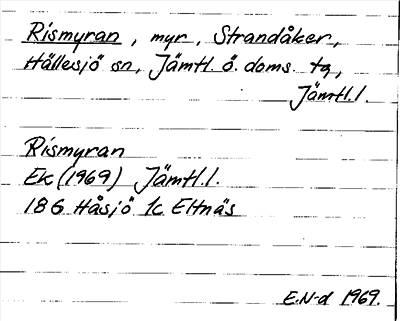 Rismyran, myr, Strandåker,
Hällesjö sn, Jämtl. ö. doms. tg,
Jämtl.l.
Rismyran
Ek (1969) Jämtl.l.
18G Håsjö 1c Eltnäs
E.N-d 1969.